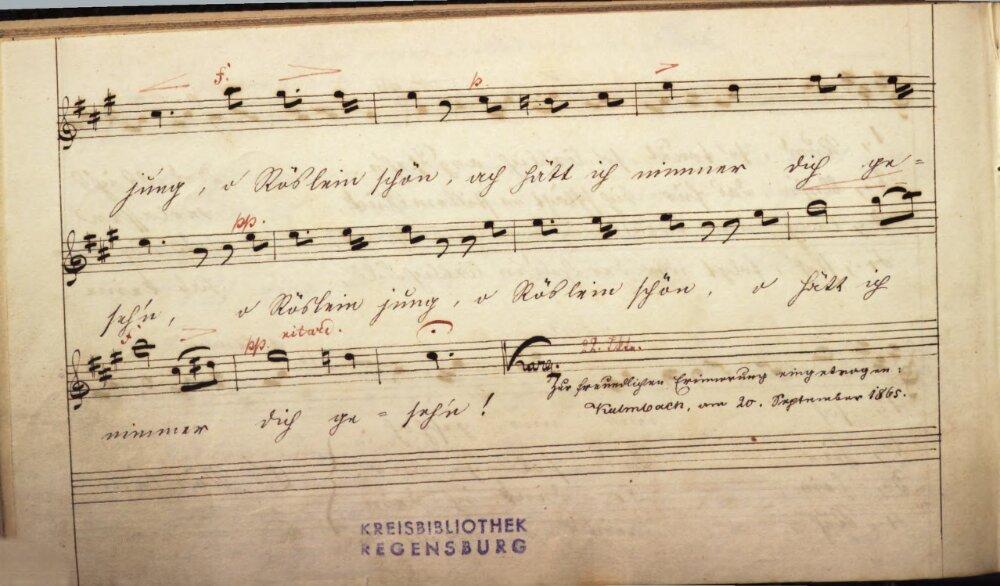 f.
p
jung, o Röslein schön, ach hätt ich nimmer dich ge=
pp.
seh'n, o Röslein jung, o Röslein schön, o hätt ich
f.
pp. ritard.
nimmer dich ge=seh'n!
Zur freundlichen Erinnerung eingetragen:
Kulmbach, am 20. September 1865.
KREISBIBLIOTHEK
REGENSBURG